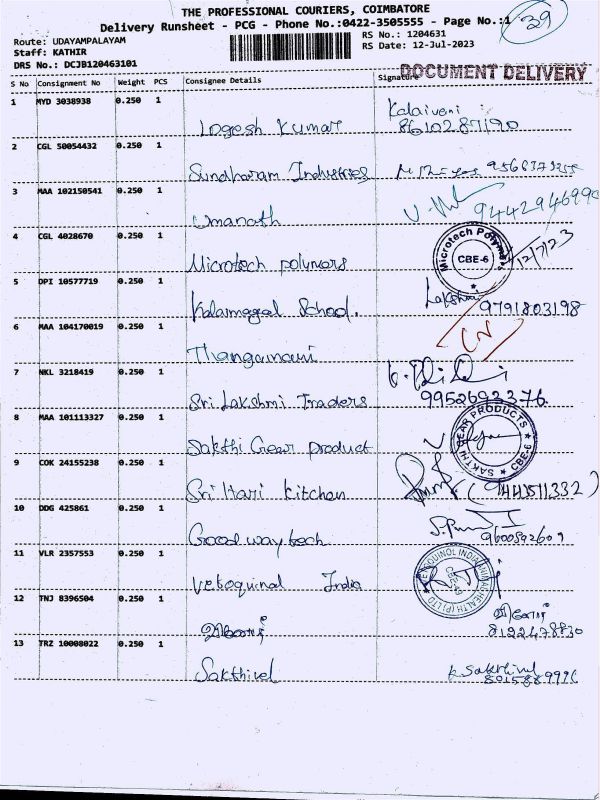 THE PROFESSIONAL COURIERS, COIMBATORE
Delivery Runsheet - PCG - Phone No.:0422-3505555 - Page No.:1
39
Route: UDAYAMPALAYAM
RS No.: 1204631
Staff: KATHIR
RS Date: 12-Jul-2023
DRS No.: DCJB120463101
DOCUMENT DELIVERY
S No Consignment No Weight PCS Consignee Details Signature
1 MYD 3038938 0.250 1
Kalaiveni
Logesh Kumar
2 CGL 50054432 0.250 1
Sundharam Industries
3 MAA 102150541 0.250 1
Umanath
4 CGL 4028670 0.250 1
Microtech polymers
Microtech Polymers
CBE-6
12/7/23
5 DPI 10577719 0.250 1
Lakshmi
Kalaimagal School. 9791803198
6 MAA 104170019 0.250 1
Thangamani
7 NKL 3218419 0.250 1
Sri Lakshmi Traders 9952693376
8 MAA 101113327 0.250 1
SAKTHI GEAR PRODUCTS
CBE-6
Sakthi Gear product
9 COK 24155238 0.250 1
Sri Hari Kitchen (9443511332)
10 DDG 425861 0.250 1
Good way tech 9600892609
11 VLR 2357553 0.250 1
Vetoquinal India
12 TNJ 8396504 0.250 1
8122478830
13 TRZ 10008022 0.250 1
Sakthivel
K Sakthivel